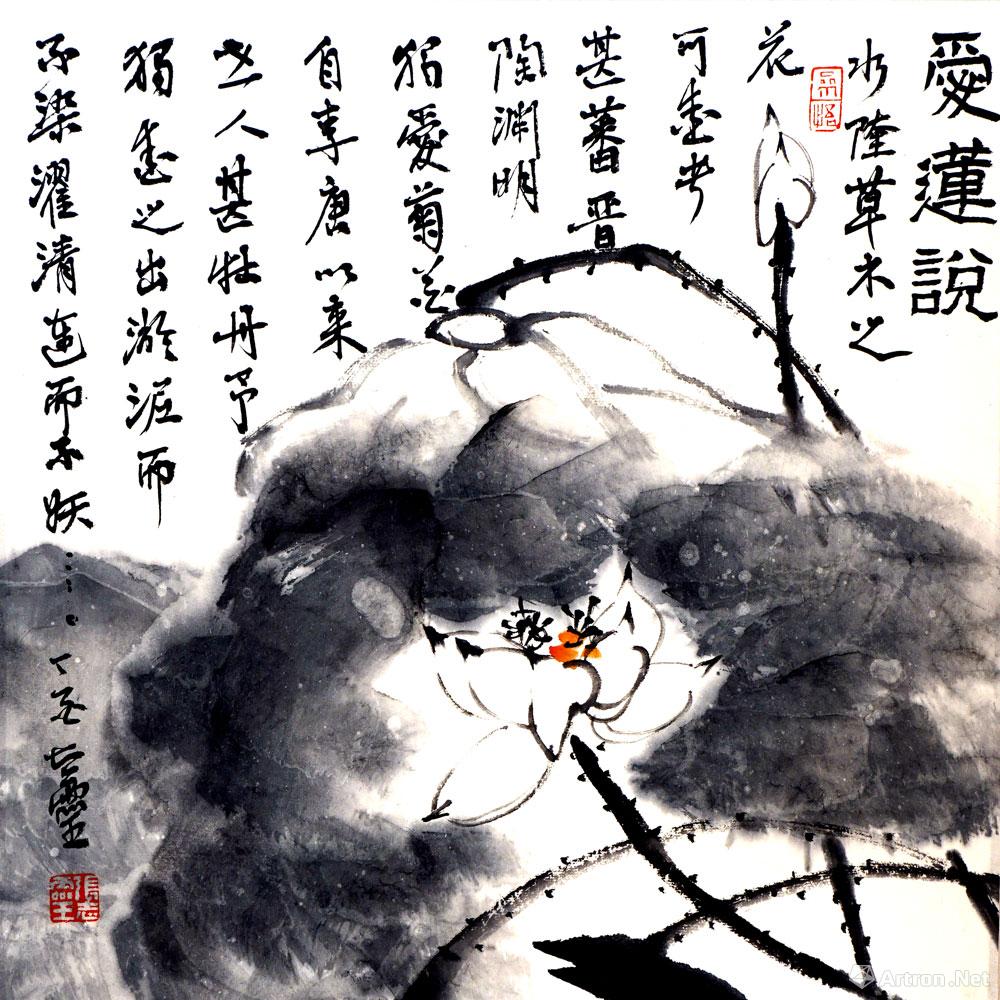 愛蓮説
水陸草木之
花
可愛者
甚蕃晋
陶渊明
獨愛菊花
自李唐以来
世人甚牡丹予
獨愛之出淤泥而
不染濯清漣而不妖……
丁
靈
Artron.Net